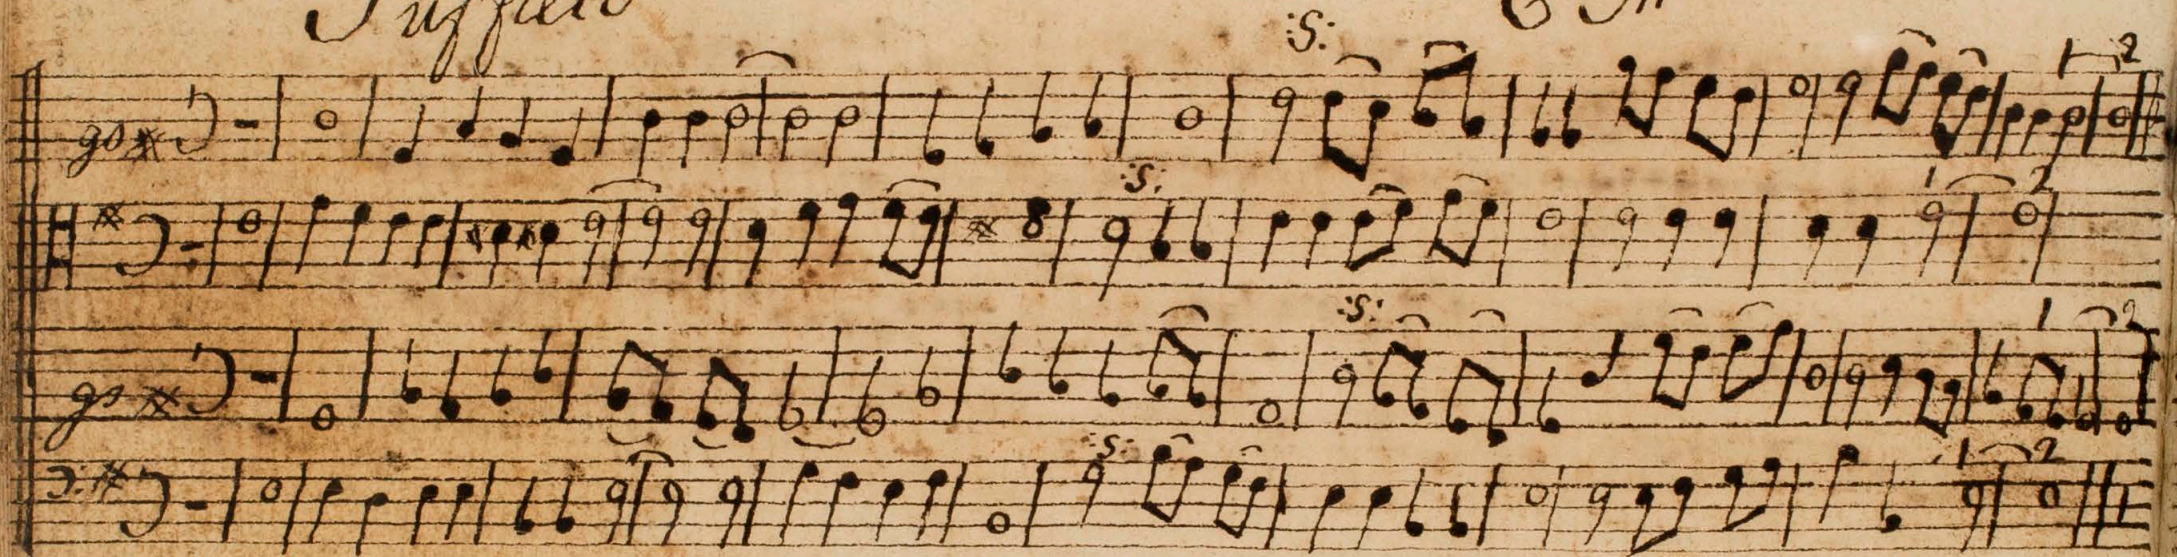 Suffield C M
:S:
1 2
:S:
1 2
:S:
1 2
:S:
1 2